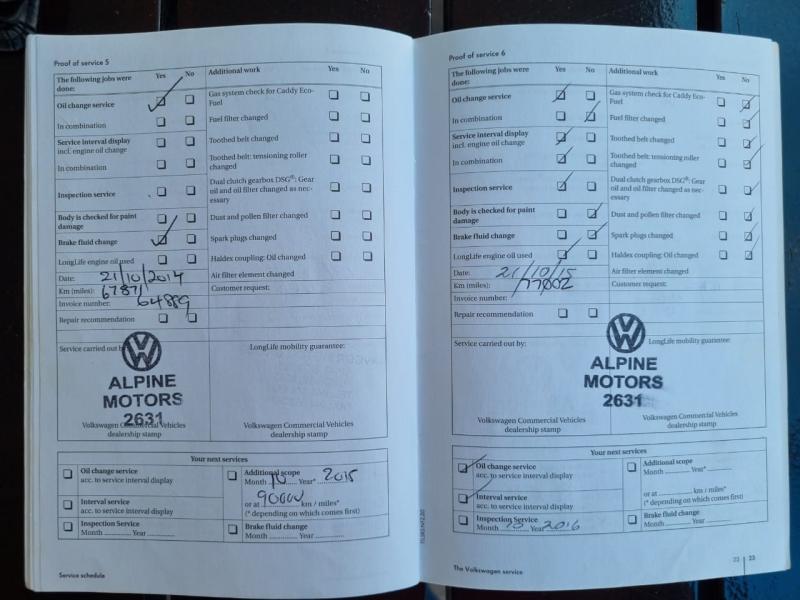 Proof of service 5
The following jobs were done: Yes No Additional work Yes No
Oil change service Gas system check for Caddy Eco-Fuel
In combination Fuel filter changed
Service interval display incl. engine oil change Toothed belt changed
In combination Toothed belt: tensioning roller changed
Inspection service Dual clutch gearbox DSG®: Gear oil and oil filter changed as necessary
Body is checked for paint damage Dust and pollen filter changed
Brake fluid change Spark plugs changed
LongLife engine oil used Haldex coupling: Oil changed
Date: 21/10/2014 Air filter element changed
Km (miles): 67871 Customer request:
Invoice number: 64889
Repair recommendation
Service carried out by LongLife mobility guarantee:
ALPINE
MOTORS
2631
Volkswagen Commercial Vehicles dealership stamp Volkswagen Commercial Vehicles dealership stamp
Your next services
Oil change service
acc. to service interval display
Additional scope
Month 10 Year* 2015
or at 90000 km / miles*
(* depending on which comes first)
Interval service
acc. to service interval display
Inspection Service
Month Year
Brake fluid change
Month Year
Service schedule
Proof of service 6
The following jobs were done: Yes No Additional work Yes No
Oil change service Gas system check for Caddy Eco-Fuel
In combination Fuel filter changed
Service interval display incl. engine oil change Toothed belt changed
In combination Toothed belt: tensioning roller changed
Inspection service Dual clutch gearbox DSG®: Gear oil and oil filter changed as necessary
Body is checked for paint damage Dust and pollen filter changed
Brake fluid change Spark plugs changed
LongLife engine oil used Haldex coupling: Oil changed
Date: 21/10/15 Air filter element changed
Km (miles): 77002 Customer request:
Invoice number:
Repair recommendation
Service carried out by: LongLife mobility guarantee:
ALPINE
MOTORS
2631
Volkswagen Commercial Vehicles dealership stamp Volkswagen Commercial Vehicles dealership stamp
Your next services
Oil change service
acc. to service interval display
Additional scope
Month Year*
or at km / miles*
(* depending on which comes first)
Interval service
acc. to service interval display
Inspection Service
Month 10 Year 2016
Brake fluid change
Month Year
The Volkswagen service
22 23